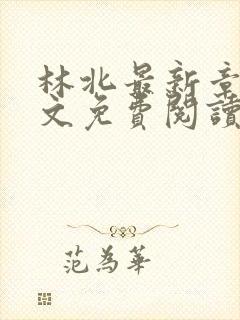 林北最新章
文免費閱讀
范為華